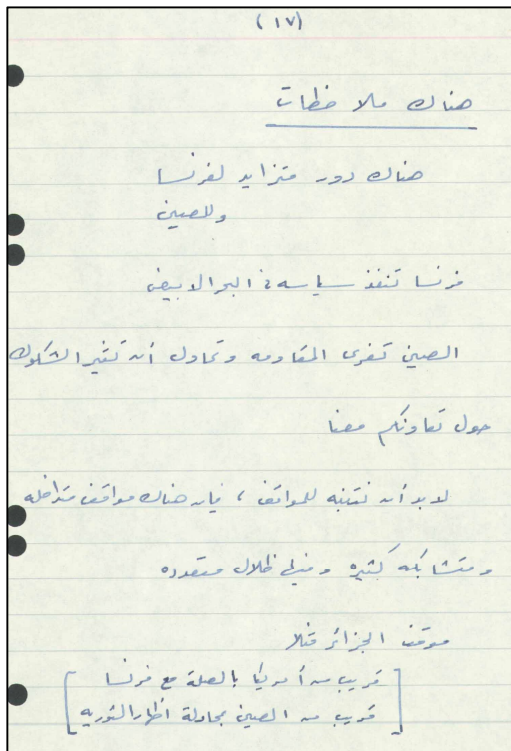 (١٧)
هناك ملاحظات
هناك دور متزايد لفرنسا
وللصين
فرنسا تنفذ سياسه في البحر الابيض
الصين تغرى المقاومه وتحاول أن تثير الشكوك
حول تعاونكم معنا
لابد أن نتنبه للمواقف ، فإن هناك مواقف متداخله
ومتشابكه كثيره وفيها ظلال متعدده
موقف الجزائر مثلا
[ قريب من أمريكا بالصلة مع فرنسا
قريب من الصين بمحاولة اظهار الثوريه ]